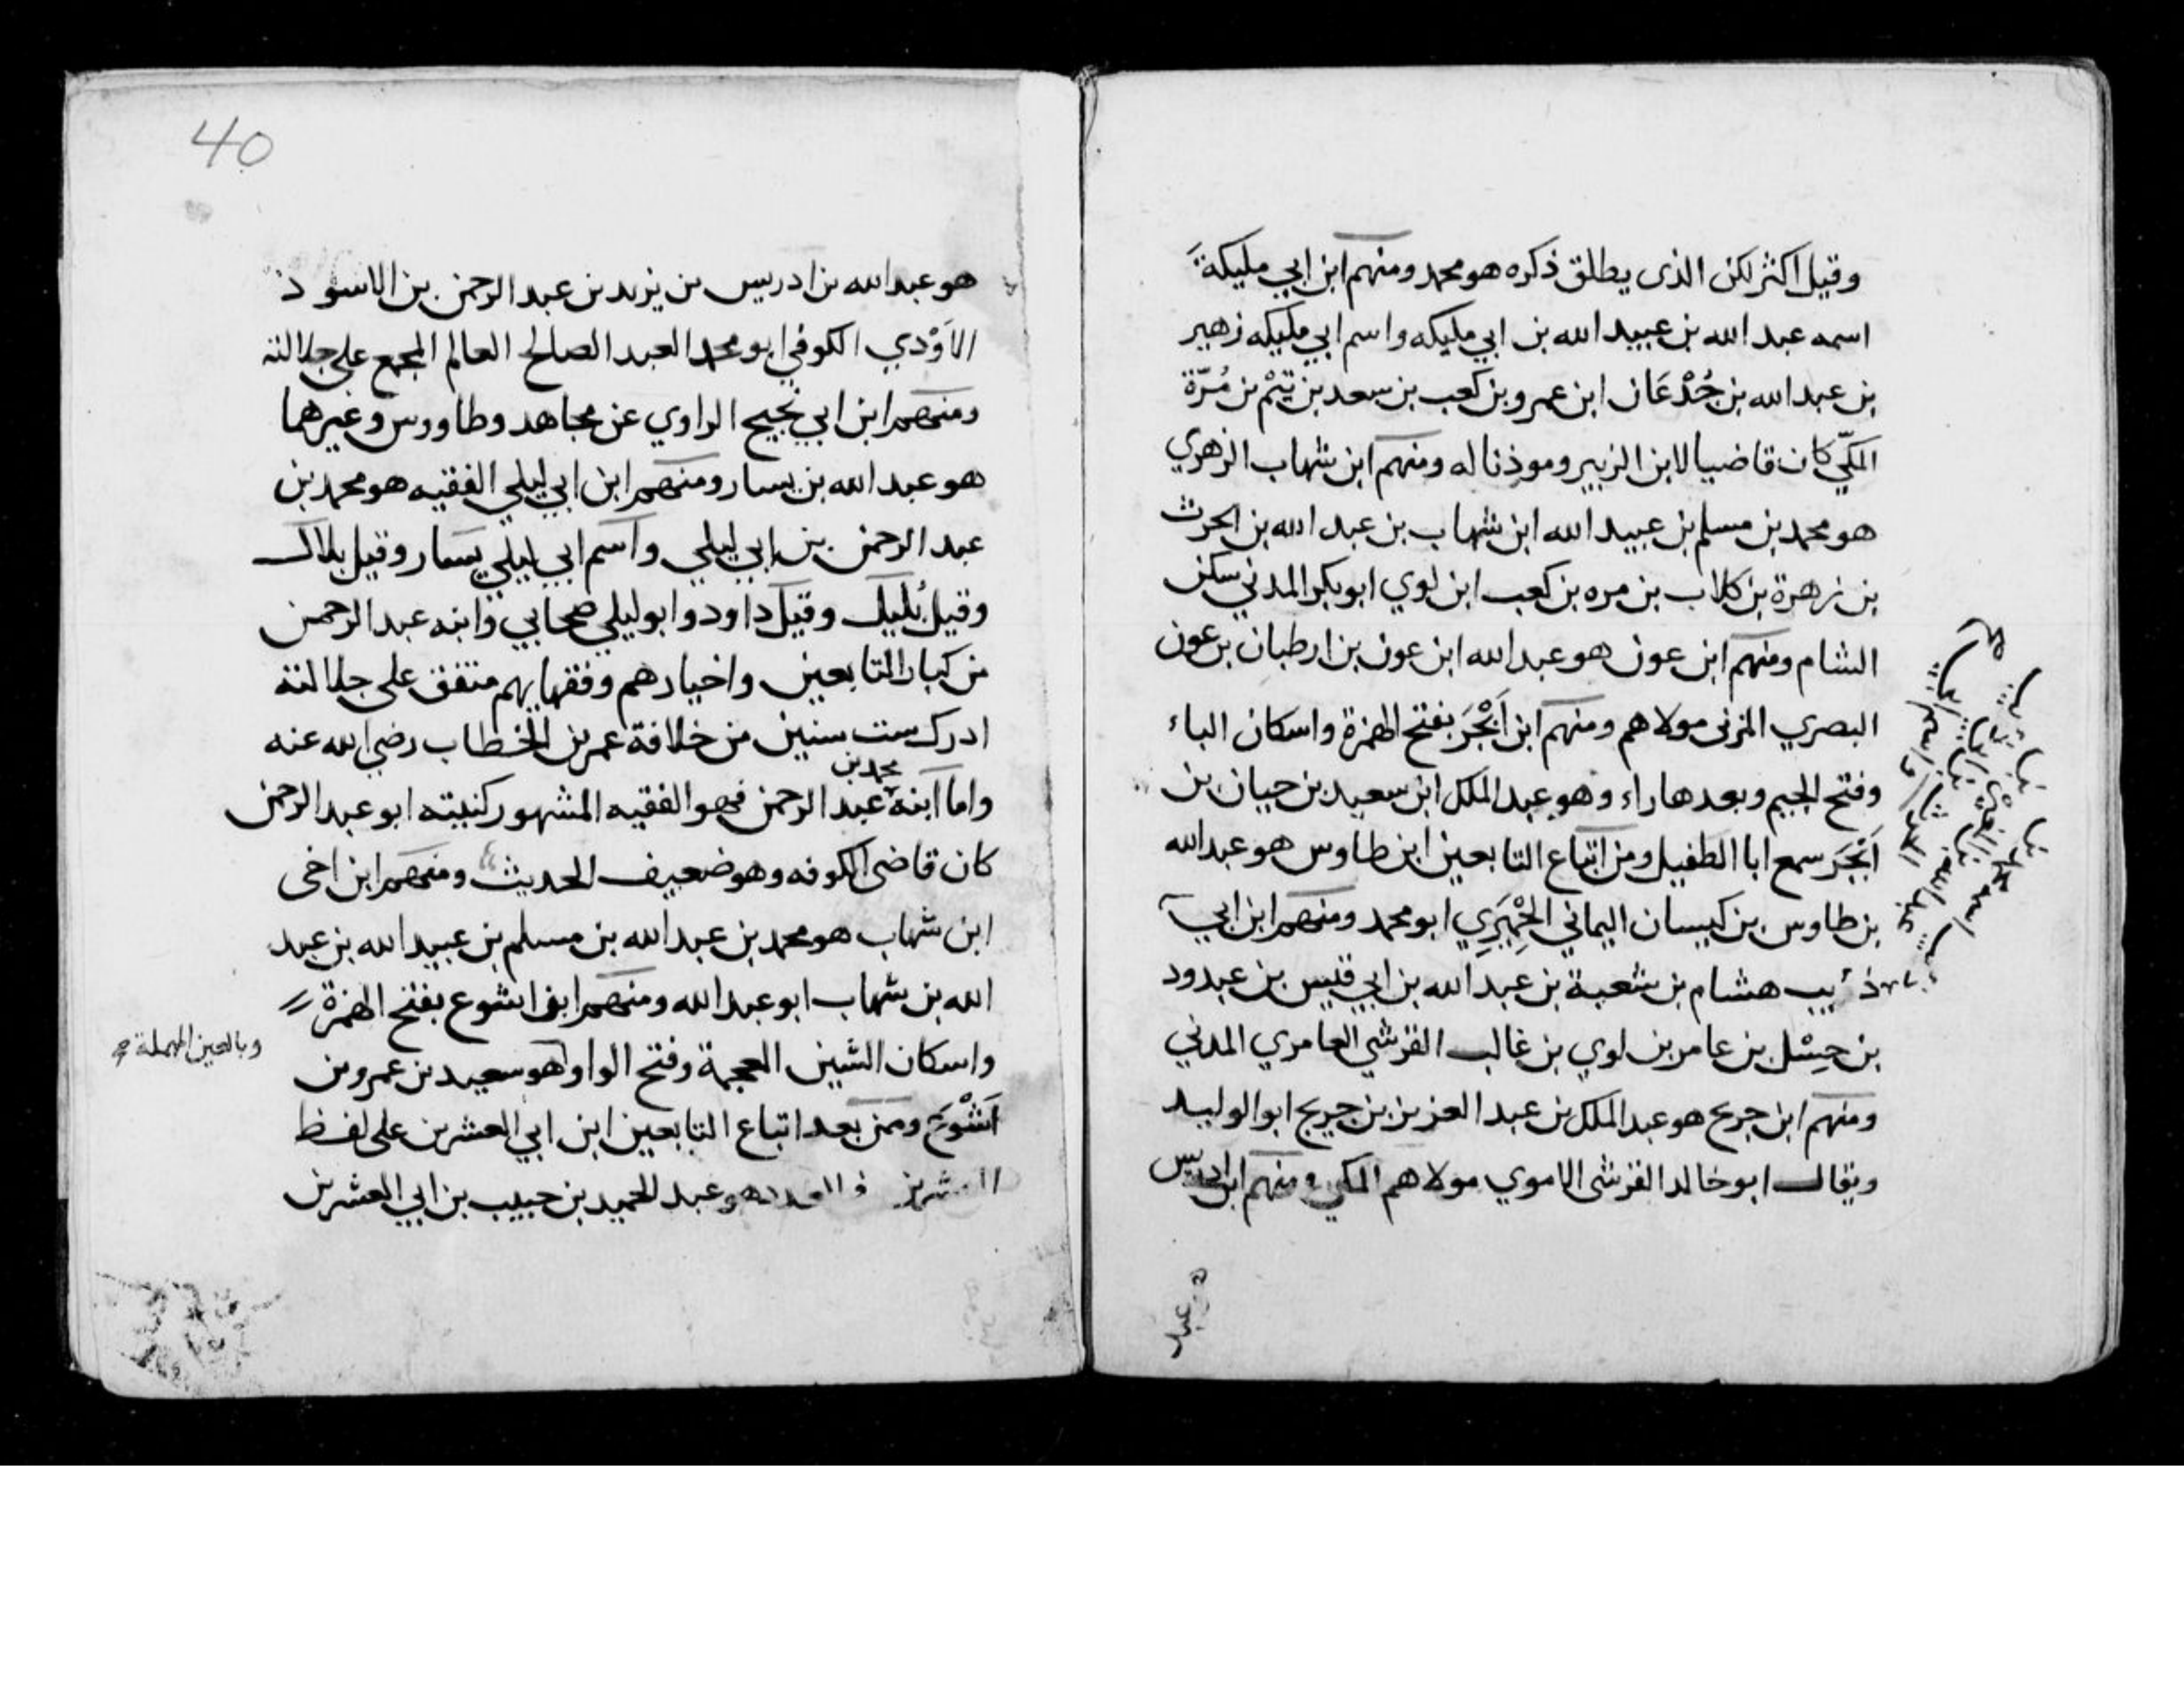 وقيل اكثر لكن الذى يطلق ذكره هو محمد ومنهم ابن ابي مليكة
اسمه عبد الله بن عبيد الله بن ابي مليكه واسم ابي مليكه زهير
بن عبد الله بن جُدْعَان ابن عمرو بن كعب بن سعد بن تَيْم بن مُرّة
المكّي كان قاضيا لابن الزبير وموذنا له ومنهم ابن شهاب الزهري
هو محمد بن مسلم بن عبيد الله ابن شهاب بن عبد الله بن الحرث
بن زهرة بن كلاب بن مره بن كعب ابن لوي ابو بكر المدني سكن
الشام ومنهم ابن عون هو عبد الله ابن عون بن ارطبان بن عون
البصري المزنى مولاهم ومنهم ابن اَبْجَرَ بفتح الهمزة واسكان الباء
وفتح الجيم وبعدها راء وهو عبد الملك ابن سعيد بن حيان بن
اَبْجَرَ سمع ابا الطفيل ومن اتباع التابعين ابن طاوس هو عبد الله
بن طاوس بن كيسان اليماني الحِمْيَرِي ابو محمد ومنهم ابن ابي
ذئيب هشام بن شعبة بن عبد الله بن ابي قيس بن عبدود
بن حِسْل بن عامر بن لوي بن غالب القرشي العامري المدني
ومنهم ابن جريح هو عبد الملك بن عبد العزيز بن جريج ابو الوليد
ويقال ابو خالد القرشى الاموي مولاهم المكي ومنهم ابن ادريس
40
هو عبد الله بن ادريس بن يزيد بن عبد الرحمن بن الاسود
الاَوْدي الكوفي ابو محمد العبد الصالح العالم المجمع على جلالته
ومنهم ابن ابي نجيح الراوي عن مجاهد وطاووس وغيرهما
هو عبد الله بن يسار ومنهم ابن ابي ليلي الفقيه هو محمد بن
عبد الرحمن بن ابي ليلي واسم ابي ليلي يسار وقيل بلال
وقيل بُليل وقيل داود وابو ليلي صحابي وابنه عبد الرحمن
من كبار التابعين واخيارهم وفقهايهم متفق على جلالته
ادرك ست سنين من خلافة عمر بن الخطاب رضي الله عنه
محمد بن
واما ابنه عبد الرحمن فهو الفقيه المشهور كنيته ابو عبد الرحمن
كان قاضى الكوفه وهو ضعيف الحديث ومنهم ابن اخى
ابن شهاب هو محمد بن عبد الله بن مسلم بن عبيد الله بن عبد
الله بن شهاب ابو عبد الله ومنهم ابن اشوع بفتح الهمزة
واسكان الشين المعجمة وفتح الواو هو سعيد بن عمرو بن
وبالعين المهملة
اَشْوَع وممن بعد اتباع التابعين ابن ابي العشرين على لفظ
العشرين هو عبد الحميد بن حبيب بن ابي العشرين